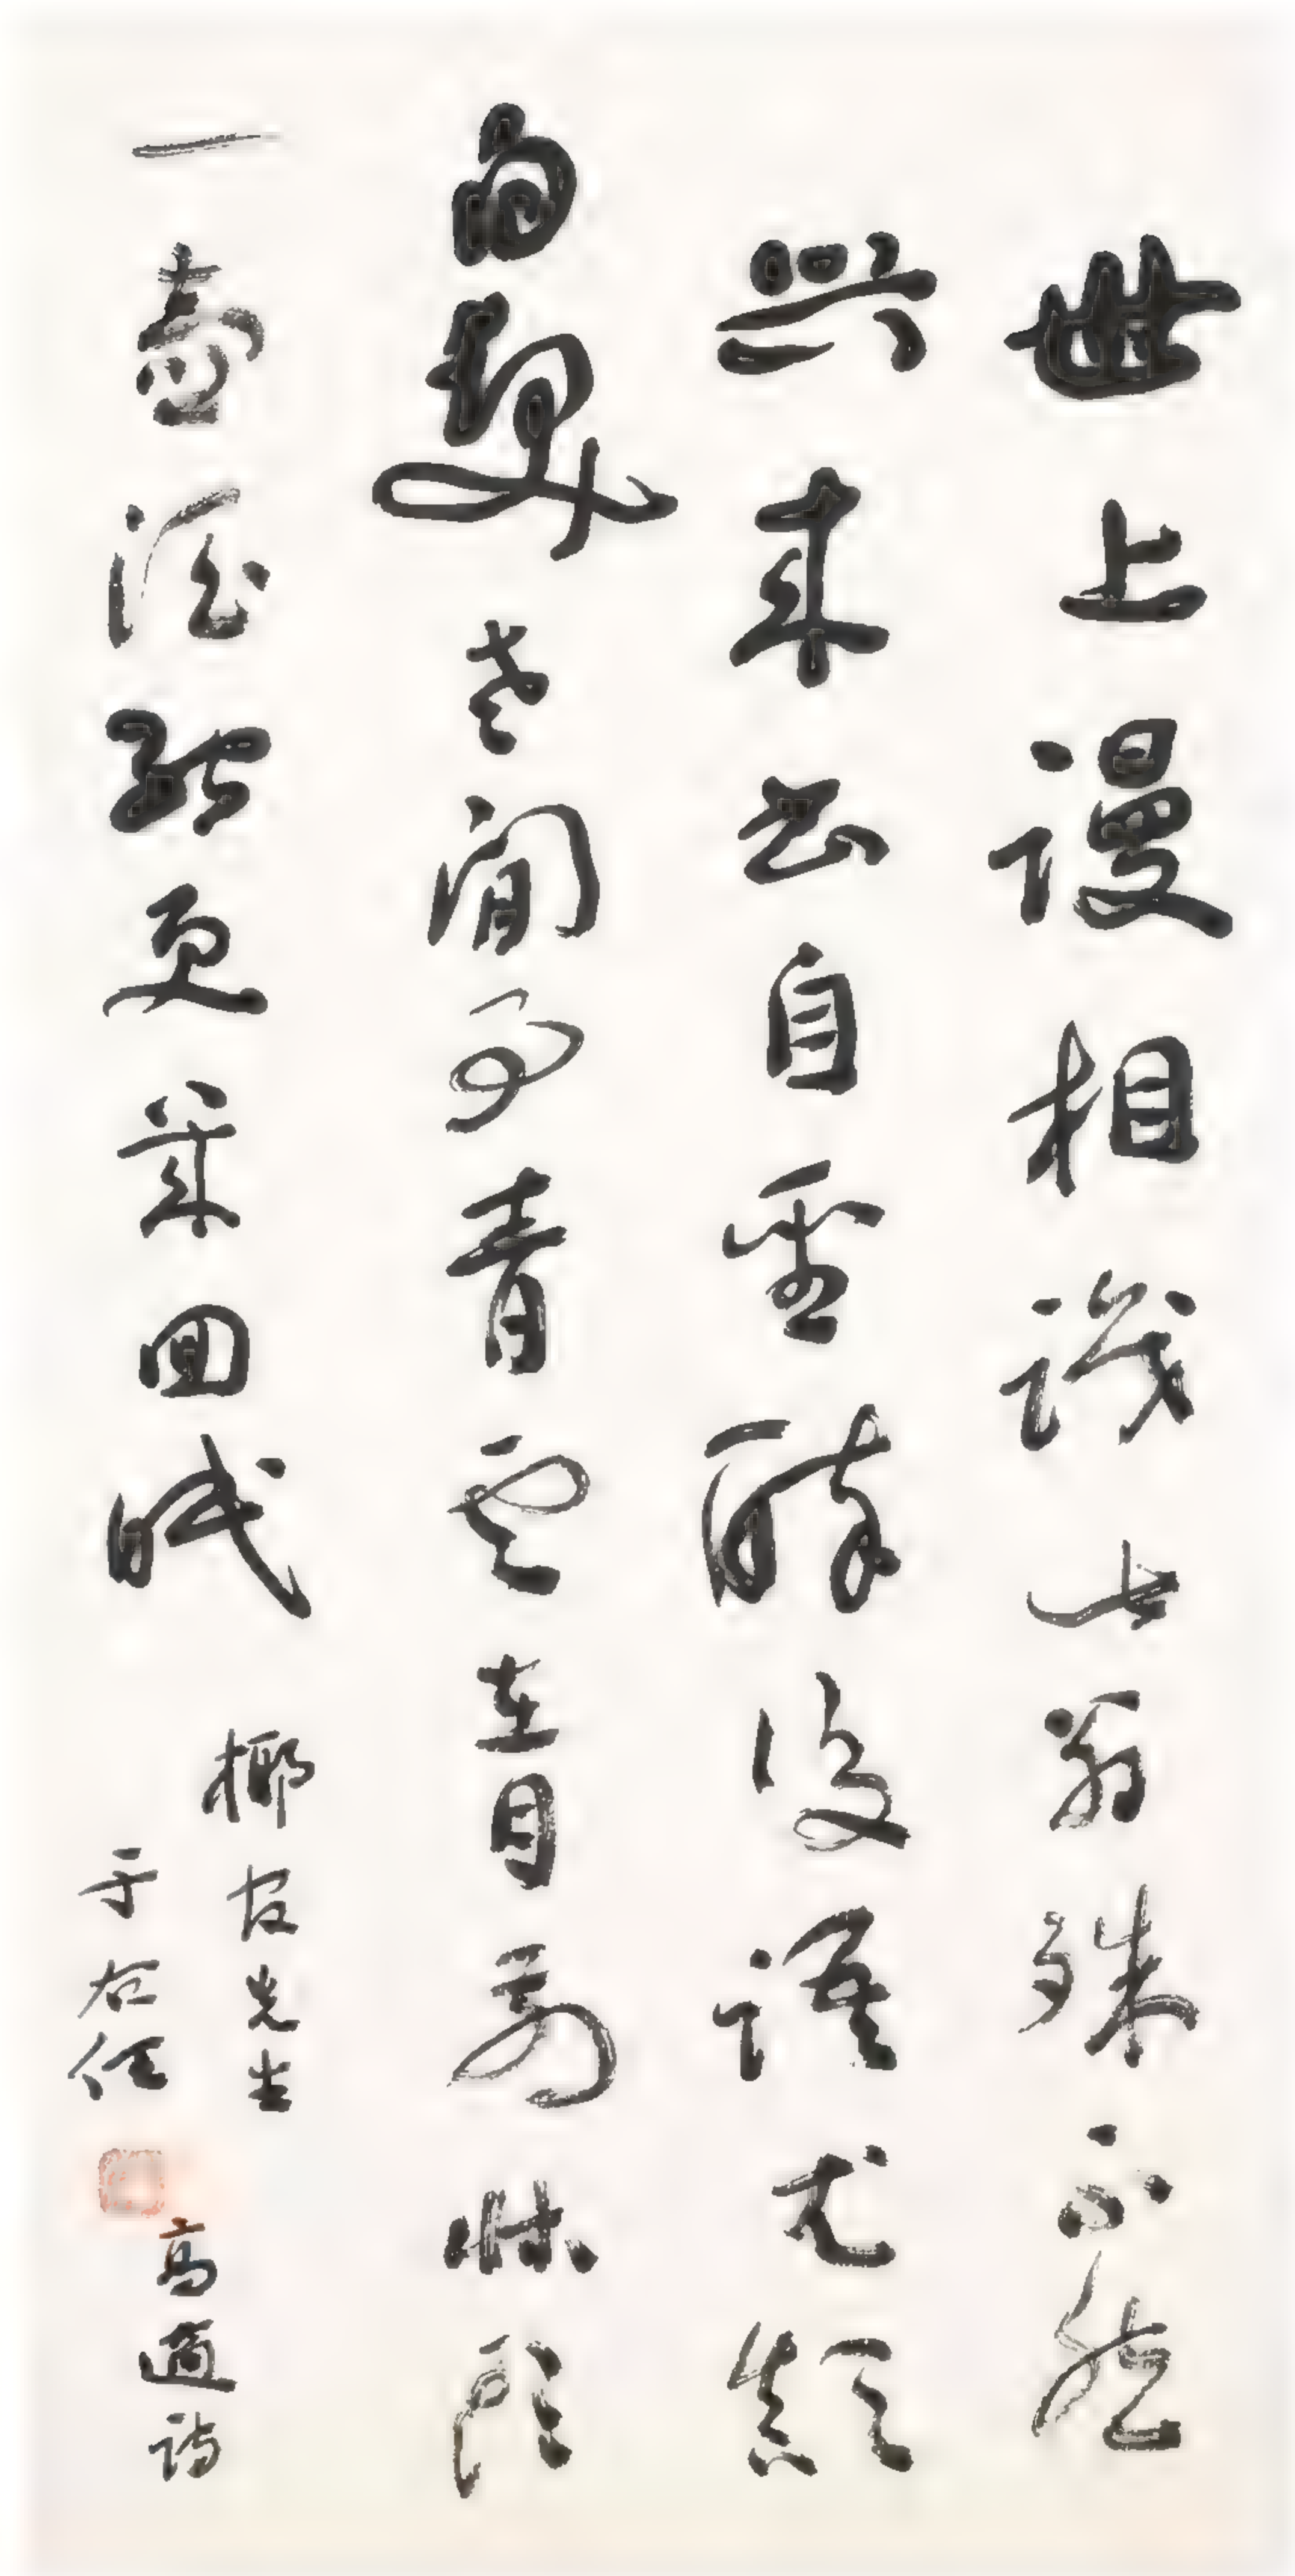 世上謾相識此翁殊不然
興來書自聖醉後語尤顛
白髮老閒事青雲在目前牀頭
一壺酒能更幾回眠
先生
于右任
高適詩